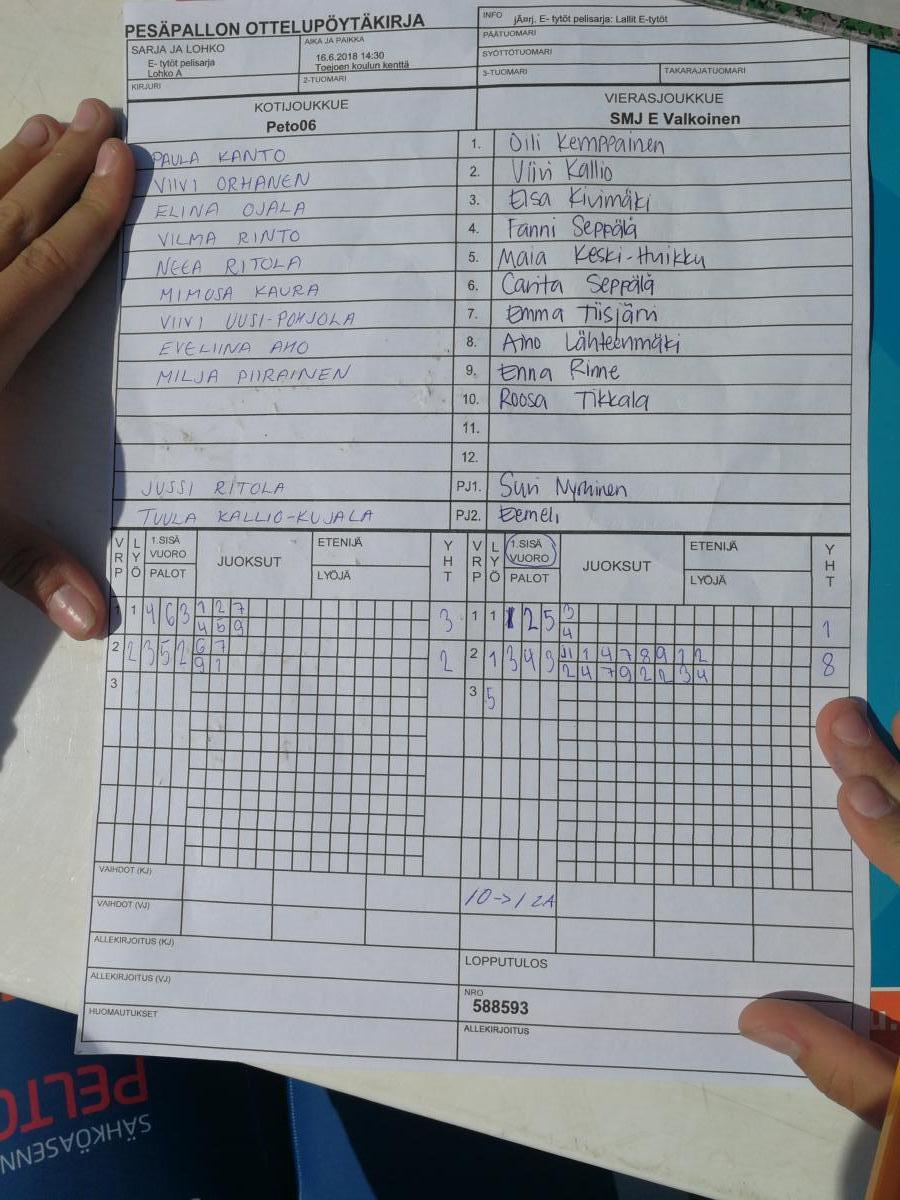 PESÄPALLON OTTELUPÖYTÄKIRJA
INFO jÄ¤rj. E- tytöt pelisarja: Lallit E-tytöt
SARJA JA LOHKO
E- tytöt pelisarja
Lohko A
AIKA JA PAIKKA
16.6.2018 14:30
Toejoen koulun kenttä
PÄÄTUOMARI
SYÖTTÖTUOMARI
KIRJURI
2-TUOMARI
3-TUOMARI
TAKARAJATUOMARI
KOTIJOUKKUE
Peto06
VIERASJOUKKUE
SMJ E Valkoinen
PAULA KANTO 1. Oili Kemppainen
VIIVI ORHANEN 2. Viivi Kallio
ELINA OJALA 3. Elsa Kivimäki
VILMA RINTO 4. Fanni Seppälä
NEEA RITOLA 5. Maia Keski-Huikku
MIMOSA KAURA 6. Carita Seppälä
VIIVI UUSI-POHJOLA 7. Emma Tiisjärvi
EVELIINA AHO 8. Aino Lähteenmäki
MILJA PIIRAINEN 9. Enna Rinne
10. Roosa Tikkala
11.
12.
JUSSI RITOLA PJ1. Suvi
TUULA KALLIO-KUJALA PJ2. Eemeli
VRP LYÖ 1.SISÄ VUORO PALOT JUOKSUT ETENIJÄ LYÖJÄ YHT VRP LYÖ 1.SISÄ VUORO PALOT JUOKSUT ETENIJÄ LYÖJÄ YHT
1 1 4 6 3 1 2 7 3 1 1 1 2 5 3 1
4 5 9 4
2 2 3 5 2 6 7 2 2 1 3 4 3 11 1 4 7 8 9 1 2 8
9 1 2 4 7 9 2 2 3 4
3 3 5
VAIHDOT (KJ) 10->1 2A
VAIHDOT (VJ)
ALLEKIRJOITUS (KJ)
LOPPUTULOS
ALLEKIRJOITUS (VJ)
NRO
588593
HUOMAUTUKSET
ALLEKIRJOITUS
PELTO
SÄHKÖASENN